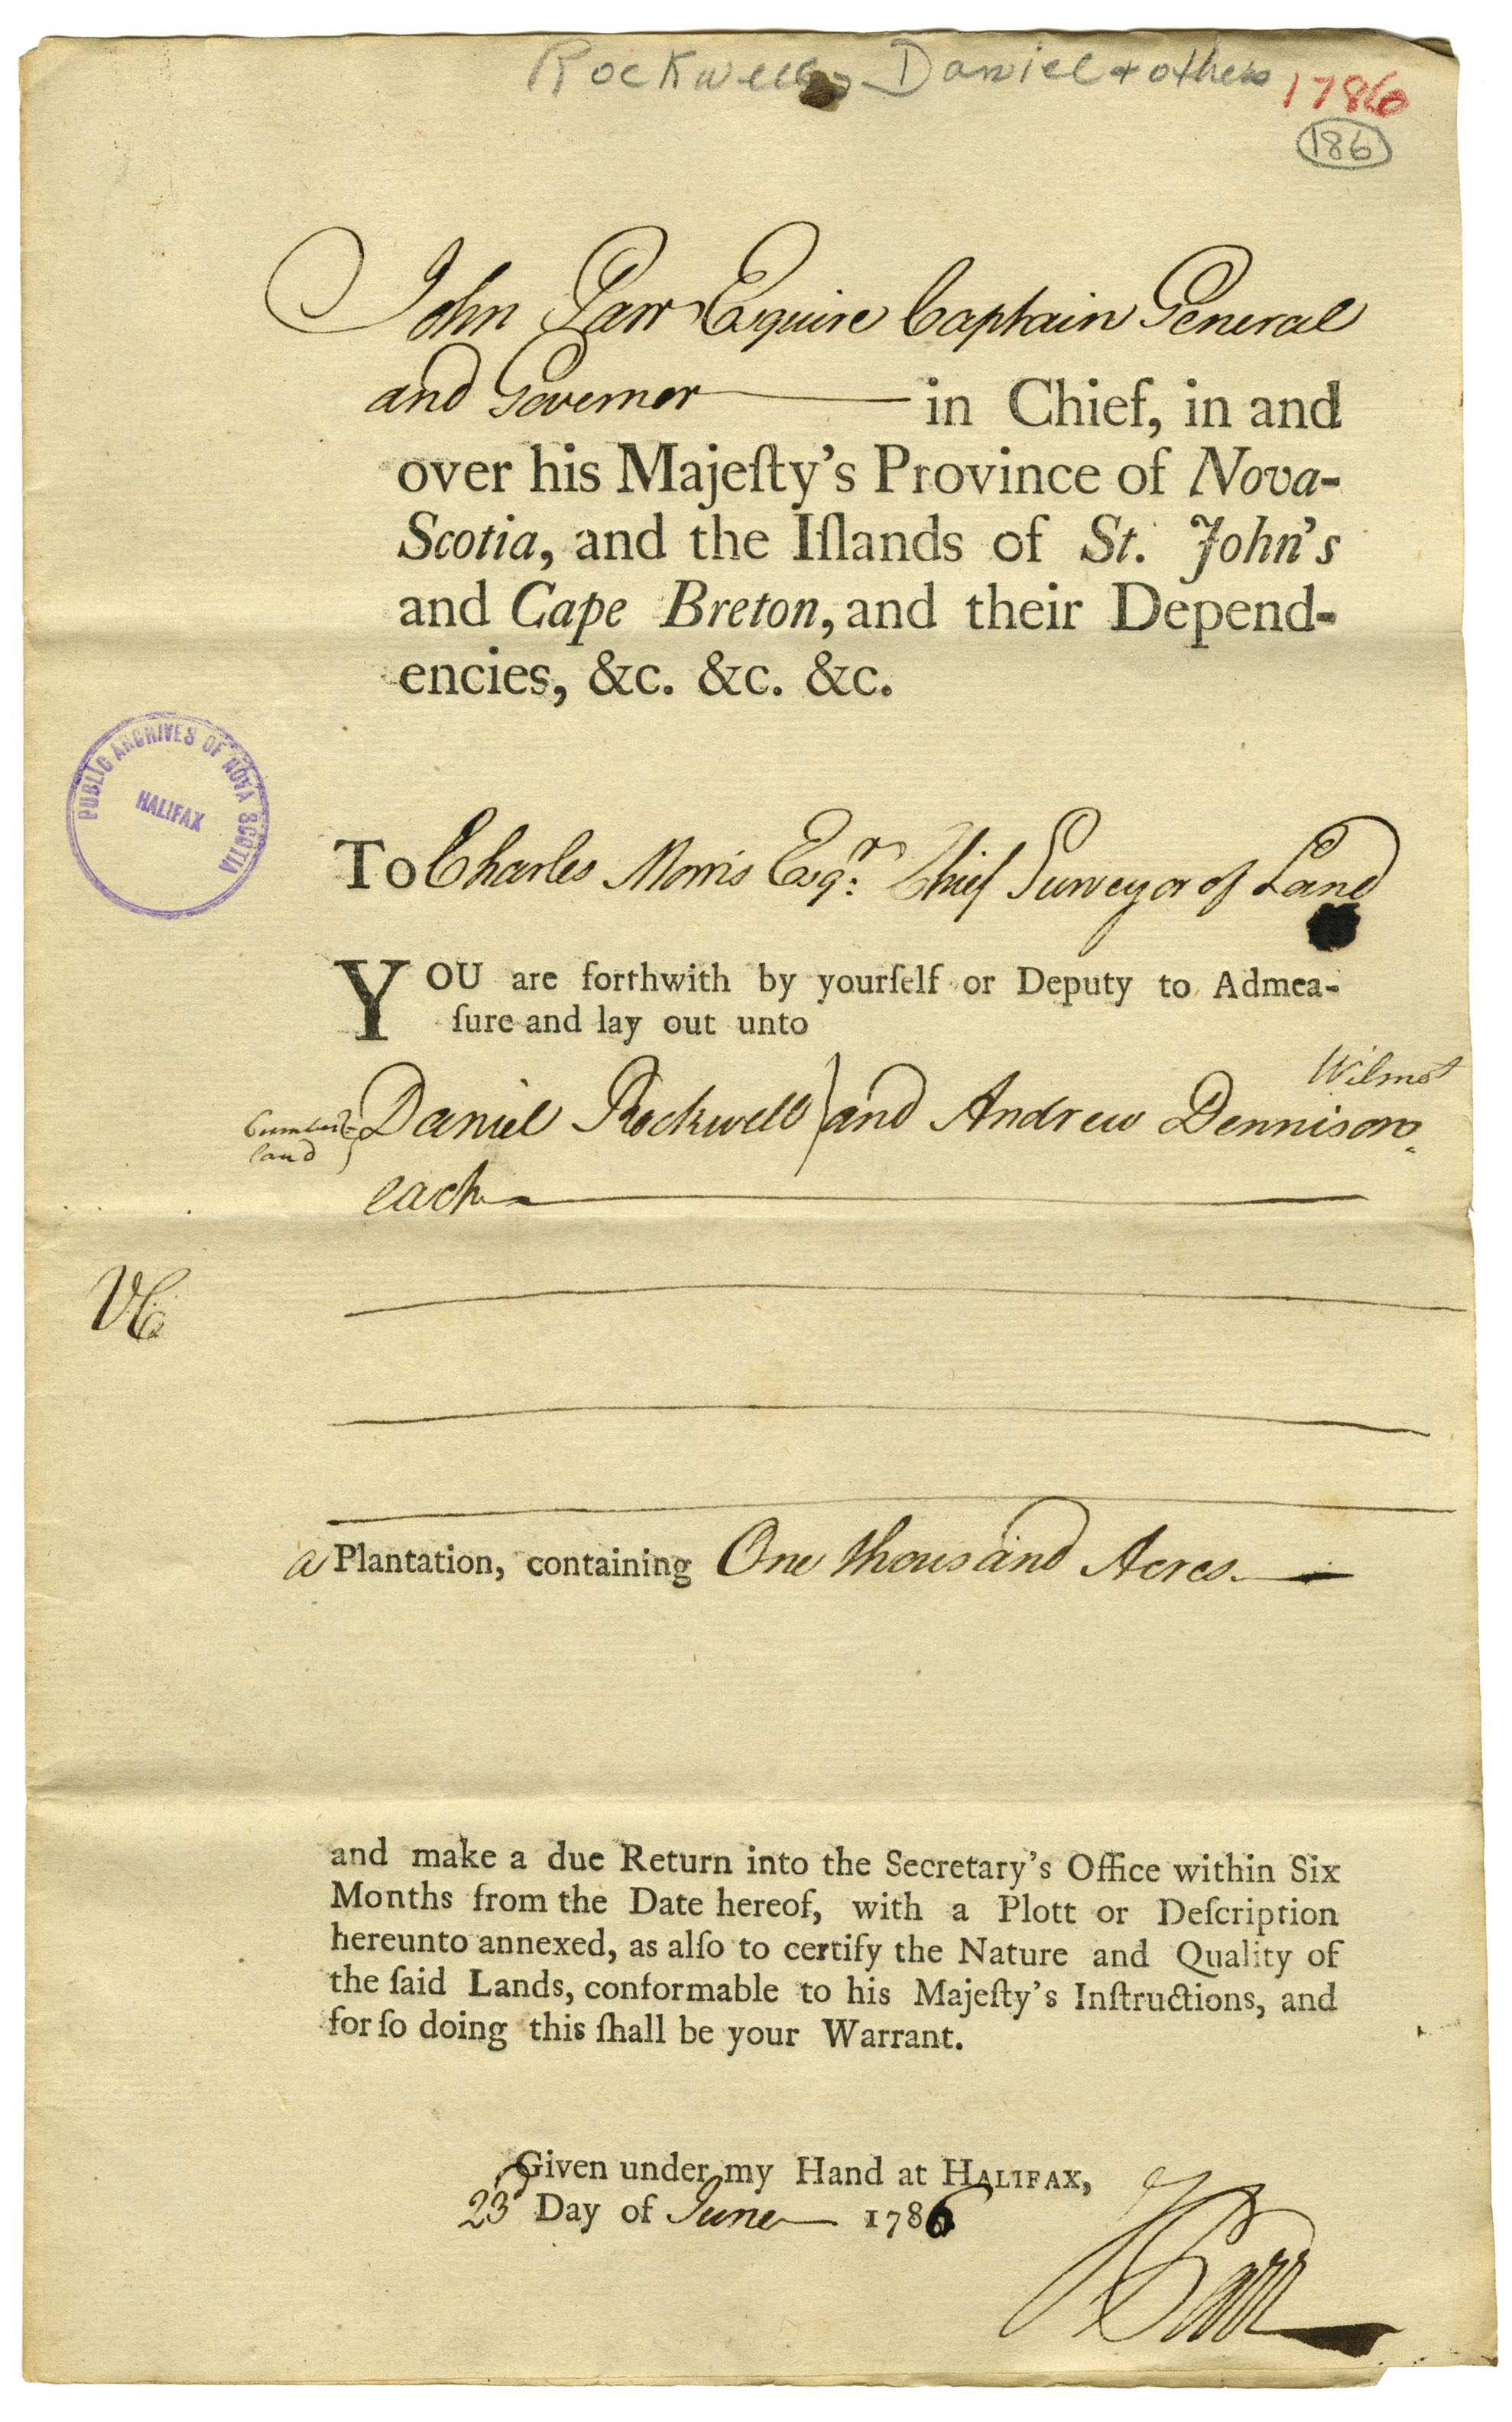 Rockwell, Daniel + others 1786
186
John Parr Esquire Captain General
and Governor in Chief, in and
over his Majeſty's Province of Nova-
Scotia, and the Iſlands of St. John's
and Cape Breton, and their Depend-
encies, &c. &c. &c.
PUBLIC ARCHIVES OF NOVA SCOTIA
HALIFAX
To Charles Morris Esqr. Chief Surveyor of Land
YOU are forthwith by yourſelf or Deputy to Admea-
ſure and lay out unto
Wilmot
Cumber-
land
Daniel Rockwell and Andrew Dennison
each
a Plantation, containing One thousand Acres.
and make a due Return into the Secretary's Office within Six
Months from the Date hereof, with a Plott or Deſcription
hereunto annexed, as alſo to certify the Nature and Quality of
the ſaid Lands, conformable to his Majeſty's Inſtructions, and
for ſo doing this ſhall be your Warrant.
Given under my Hand at HALIFAX,
23d Day of June 1786
J Parr